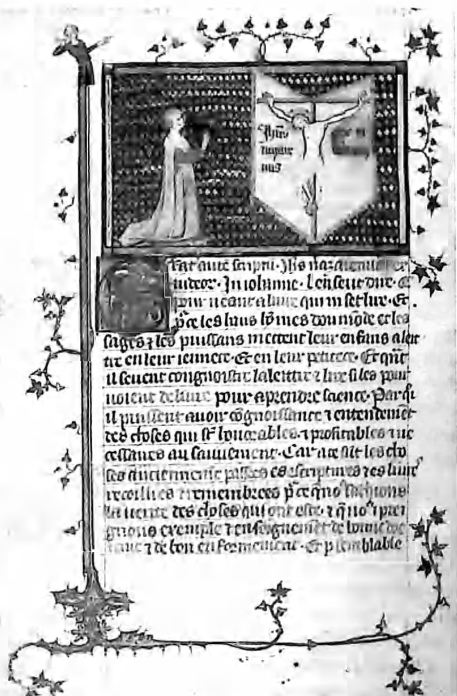 Jhūs
nazare
nus
Erat autē scriptū. Jhs nazarenus rex
iudeor. In iohanne. L'en seut dire. q̄
pour neant a liure qui ni set lire. Et
pᵉ ce les haus hōmes dou mōde et les
sages ⁊ les puissans mettent leur enfans a lett
re en leur iennece. Et en leur petitece. Et qūt
il seuent congnoistre la lettre ⁊ lire si les pour
uoient de liure pour aprendre science. Par si
il puissent auoir cōgnoissance ⁊ entendemēt
des choses qui sᵗ honorables. ⁊ profitables ⁊ ne
cessaires au sauuement. Car a ce sᵗ les cho
ses anciennemēt es escriptures ⁊ es liures
recoillies ⁊ remembrees pᵉ ce q̄ noᵒ sachions
la uerite des choses qui ont este. ⁊ q̄ noᵒ i prei
gnons exemple ⁊ enseignemēt de bonne
⁊ de bon enformement. Et p semblable